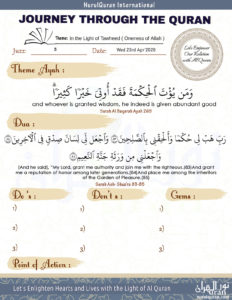 NurulQuran International
JOURNEY THROUGH THE QURAN
Theme: In the Light of Tawheed ( Oneness of Allah )
Juzz: 3 Date: Wed 23rd Apr 2025
Let's Empower
Our Relation
with Al Quran
Theme Ayah :
وَمَن يُؤْتَ الْحِكْمَةَ فَقَدْ أُوتِيَ خَيْرًا كَثِيرًا
and whoever is granted wisdom, he indeed is given abundant good
Surah Al Baqarah Ayah 269
Dua :
رَبِّ هَبْ لِي حُكْمًا وَأَلْحِقْنِي بِالصَّالِحِينَ وَاجْعَل لِّي لِسَانَ صِدْقٍ فِي الْآخِرِينَ
وَاجْعَلْنِي مِن وَرَثَةِ جَنَّةِ النَّعِيمِ
(And he said), "My Lord, grant me authority and join me with the righteous.(83)And grant
me a reputation of honor among later generations.(84)And place me among the inheritors
of the Garden of Pleasure.(85)
Surah Ash- Shua'ra 83-85
Do 's : Don't s : Gems :
1) 1) 1)
2) 2) 2)
3) 3) 3)
Point of Action :
Let's Enlighten Hearts and Lives with the Light of Al Quran
نور القرآن